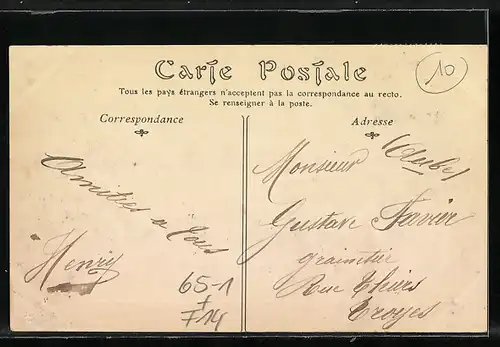 Carte Postale
10
Tous les pays étrangers n'acceptent pas la correspondance au recto.
Se renseigner à la poste.
Correspondance
Adresse
Amitiés a Tous
Henry
65-1
+
F 14
(Aube)
Monsieur
Gustave Favier
grainetier
Rue Thiers
Troyes